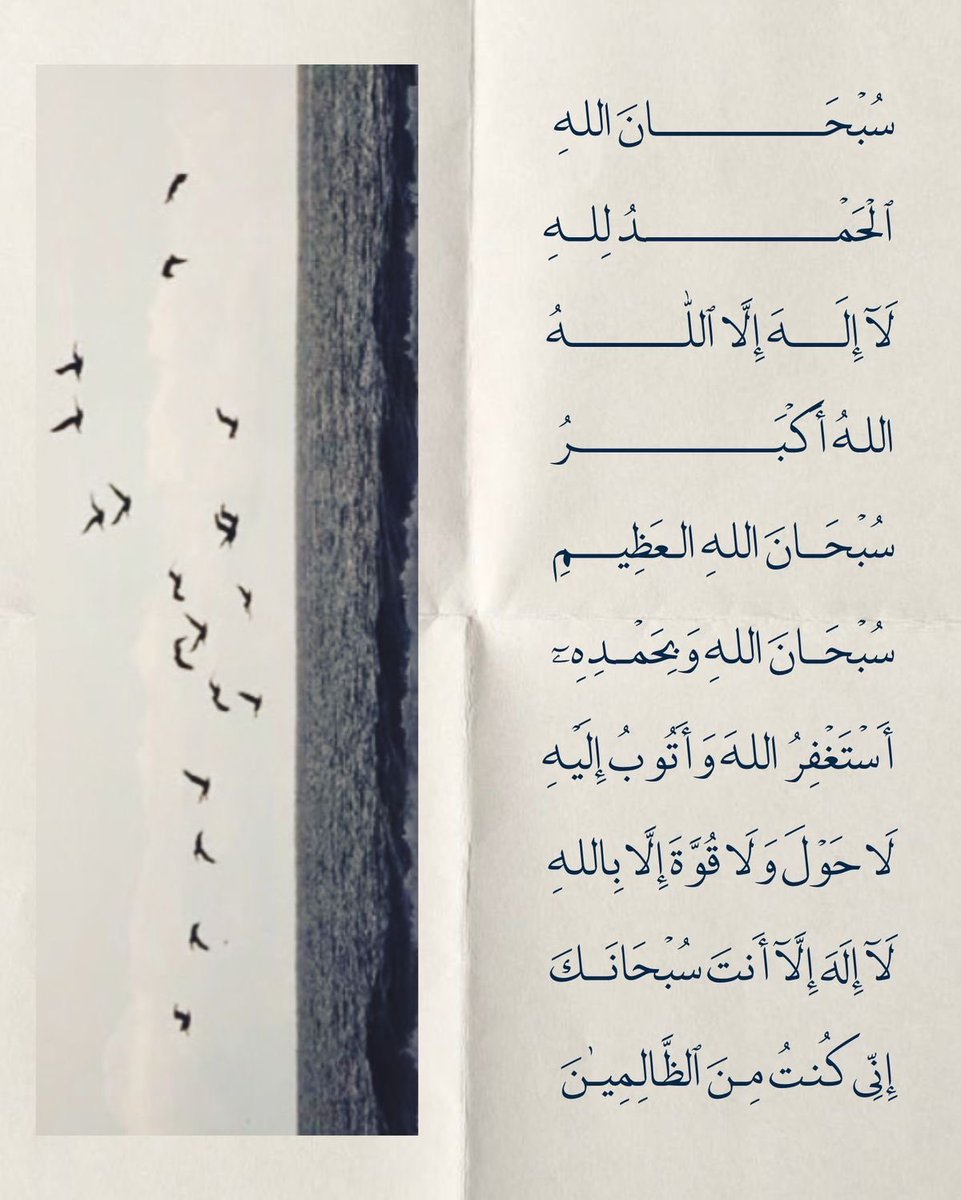 سُبْحَانَ اللهِ
ٱلْحَمْدُ لِلهِ
لَآ إِلَهَ إِلَّا ٱللّٰهُ
اللهُ أَكْبَرُ
سُبْحَانَ اللهِ العَظِيمِ
سُبْحَانَ اللهِ وَبِحَمْدِهِۦٓ
أَسْتَغْفِرُ اللهَ وَأَتُوبُ إِلَيْهِ
لَا حَوْلَ وَلَا قُوَّةَ إِلَّا بِاللهِ
لَآ إِلَهَ إِلَّآ أَنتَ سُبْحَانَكَ
إِنِّى كُنتُ مِنَ ٱلظَّالِمِينَ